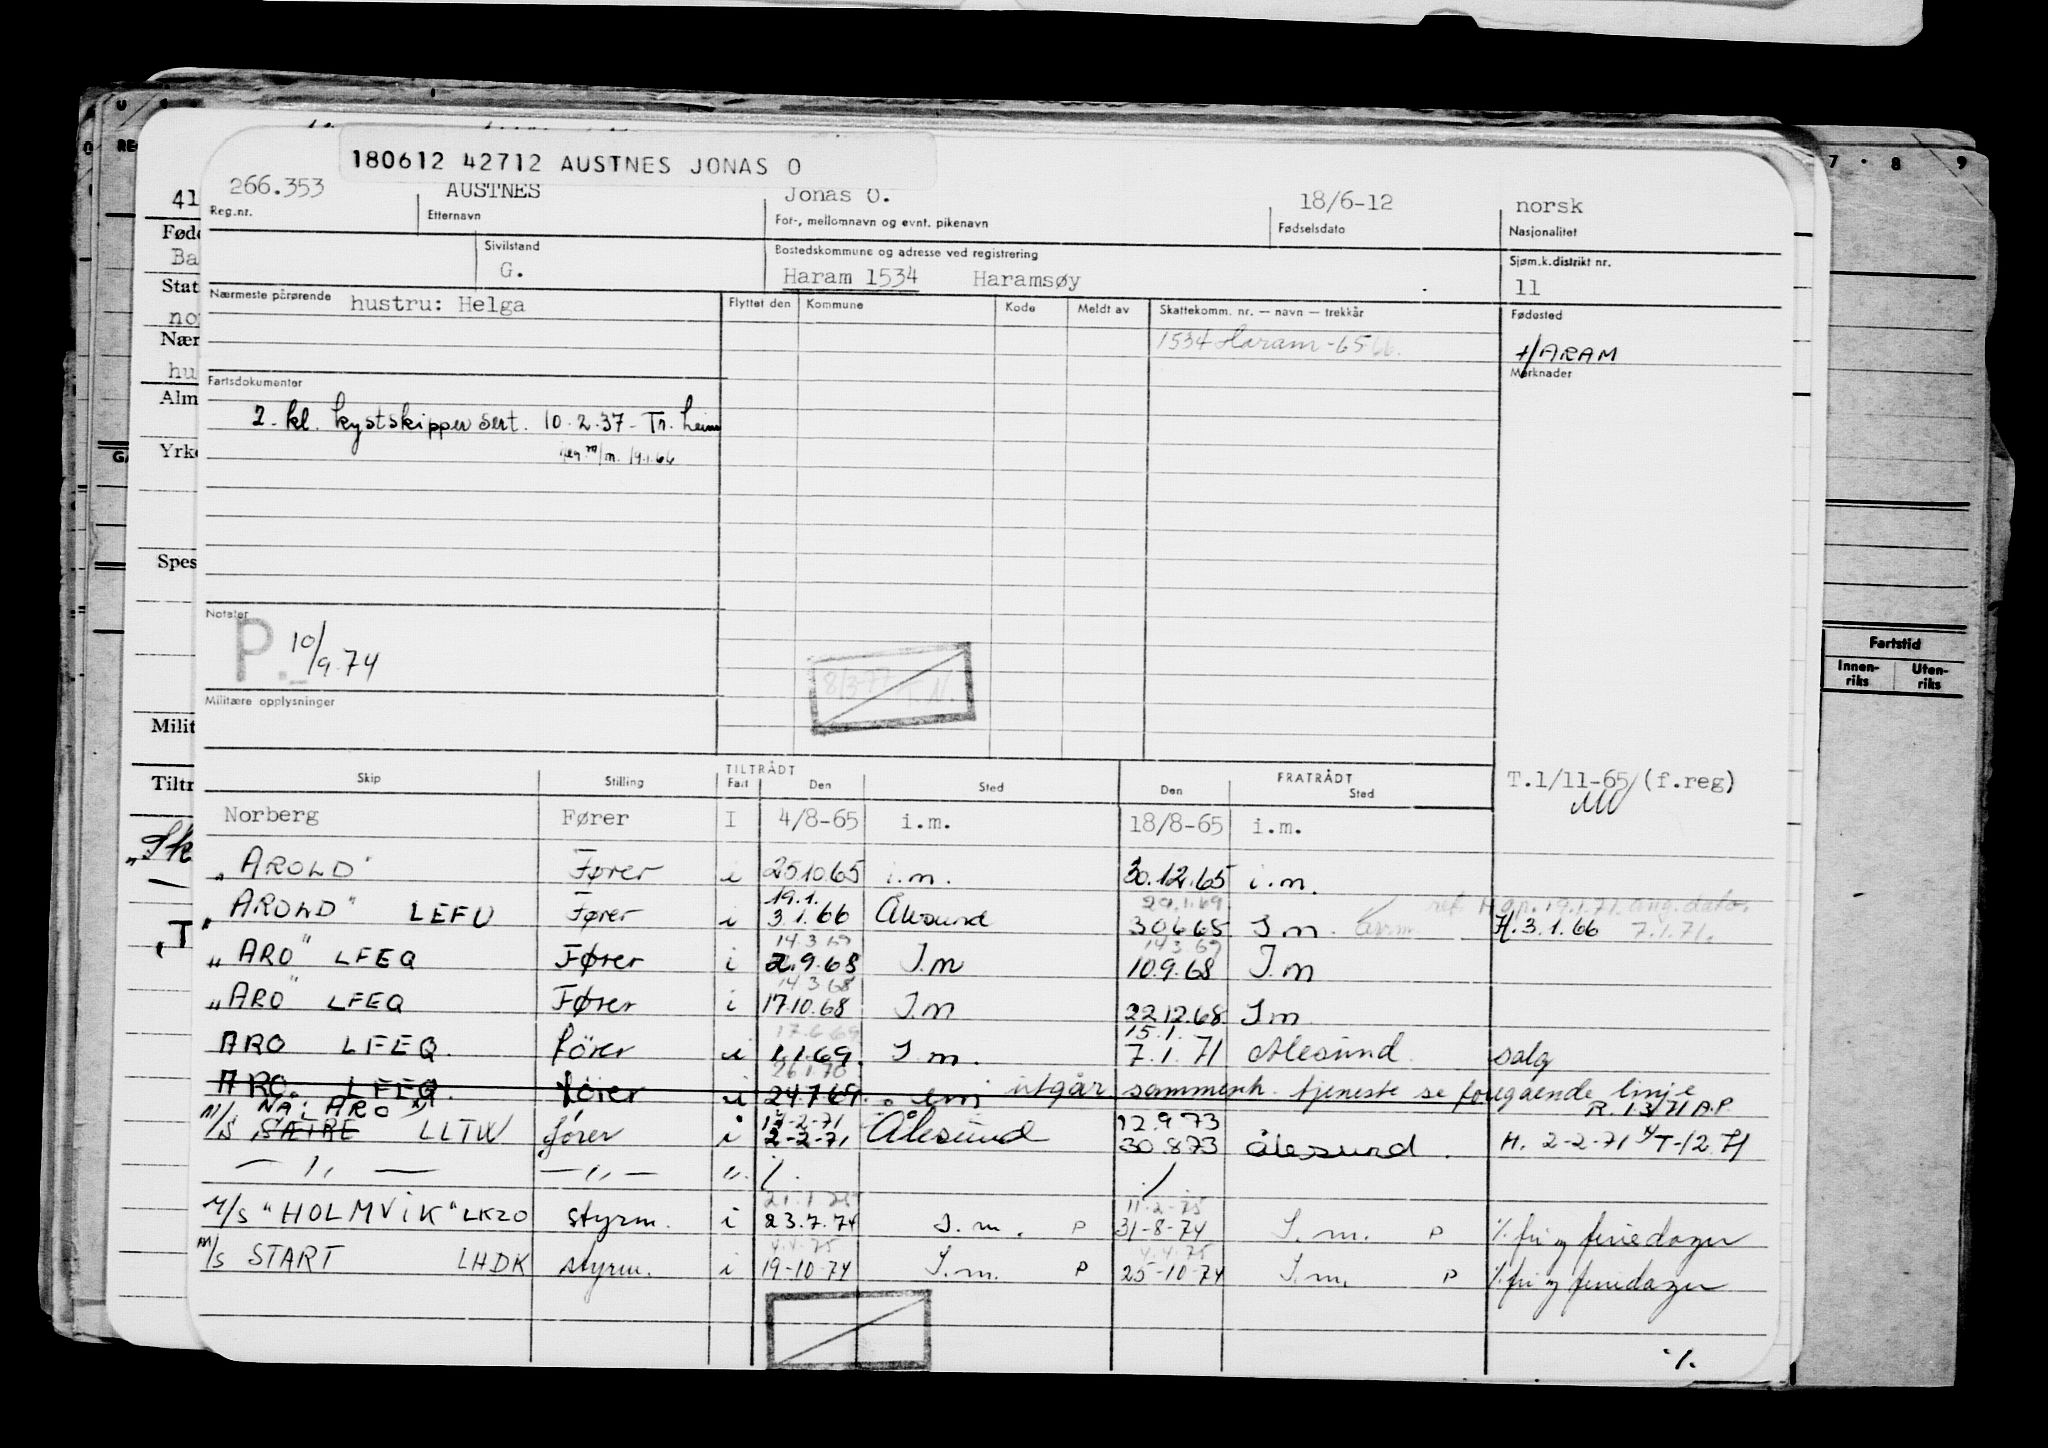 180612 42712 AUSTNES JONAS O
266.353 AUSTNES Jonas O. 18/6-12 norsk
Reg.nr. Etternavn For-, mellomnavn og evnt. pikenavn Fødselsdato Nasjonalitet
Sivilstand Bostedskommune og adresse ved registrering Sjøm.k.distrikt nr.
G. Haram 1534 Haramsøy 11
Nærmeste pårørende hustru: Helga Flyttet den Kommune Kode Meldt av Skattekomm. nr. — navn — trekkår Fødested
1534 Haram -65 HARAM
Merknader
Fartsdokumenter
2. kl. kystskippersert. 10.2.37 - Tr.heim
19.1.66
Notater
P. 10/9.74
8/3-77 T.N.
Militære opplysninger
TILTRÅDT FRATRÅDT
Skip Stilling Fart Den Sted Den Sted T.1/11-65 (f.reg)
Norberg Fører I 4/8-65 i.m. 18/8-65 i.m.
"AROLD" Fører i 25.10.65 i.m. 30.12.65 i.m.
19.1. 29.1.69 19.1.71 ang. dato
"AROLD" LEFU Fører i 3.1.66 Ålesund 30.6.68 I.m. H. 3.1.66 7.1.71.
14.3.69 14.3.69
"ARO" LFEQ Fører i 2.9.68 I.m 10.9.68 I.m
14.3.68
"ARO" LFEQ Fører i 17.10.68 I.m 22.12.68 I m
17.6.69 15.1.
ARO LFEQ. fører i 1.1.69. I m. 7.1.71 Ålesund. salg
26.1.70
ARO. LFEQ. fører i 24.7.69. im utgår sammenh. tjeneste se foregående linje
NÅ: ARO 12-2-71 12.9.73 R. 13/71 A.P.
M/S SÆTRE LLTW fører i 2-2-71 Ålesund 30.8.73 Ålesund. H. 2-2-71 T-12.71
— " — — " — ". /. /.
21.1.75 11-2-75
M/S "HOLMVIK" LKZO styrm. i 23.7.74 I.m. P 31-8-74 I.m. P %fri og feriedager
4.4.75 4.4.75
M/S START LHDK styrm. i 19-10-74 I.m. P 25-10-74 I.m. P %fri og feriedager
·/.
41
Føde
Ba
Stat
no
Nær
hu
Alm
Yrke
Spes
Milit
Tiltr
"Sk
"T
7 · 8 9
Fartstid
Innen-riks Uten-riks